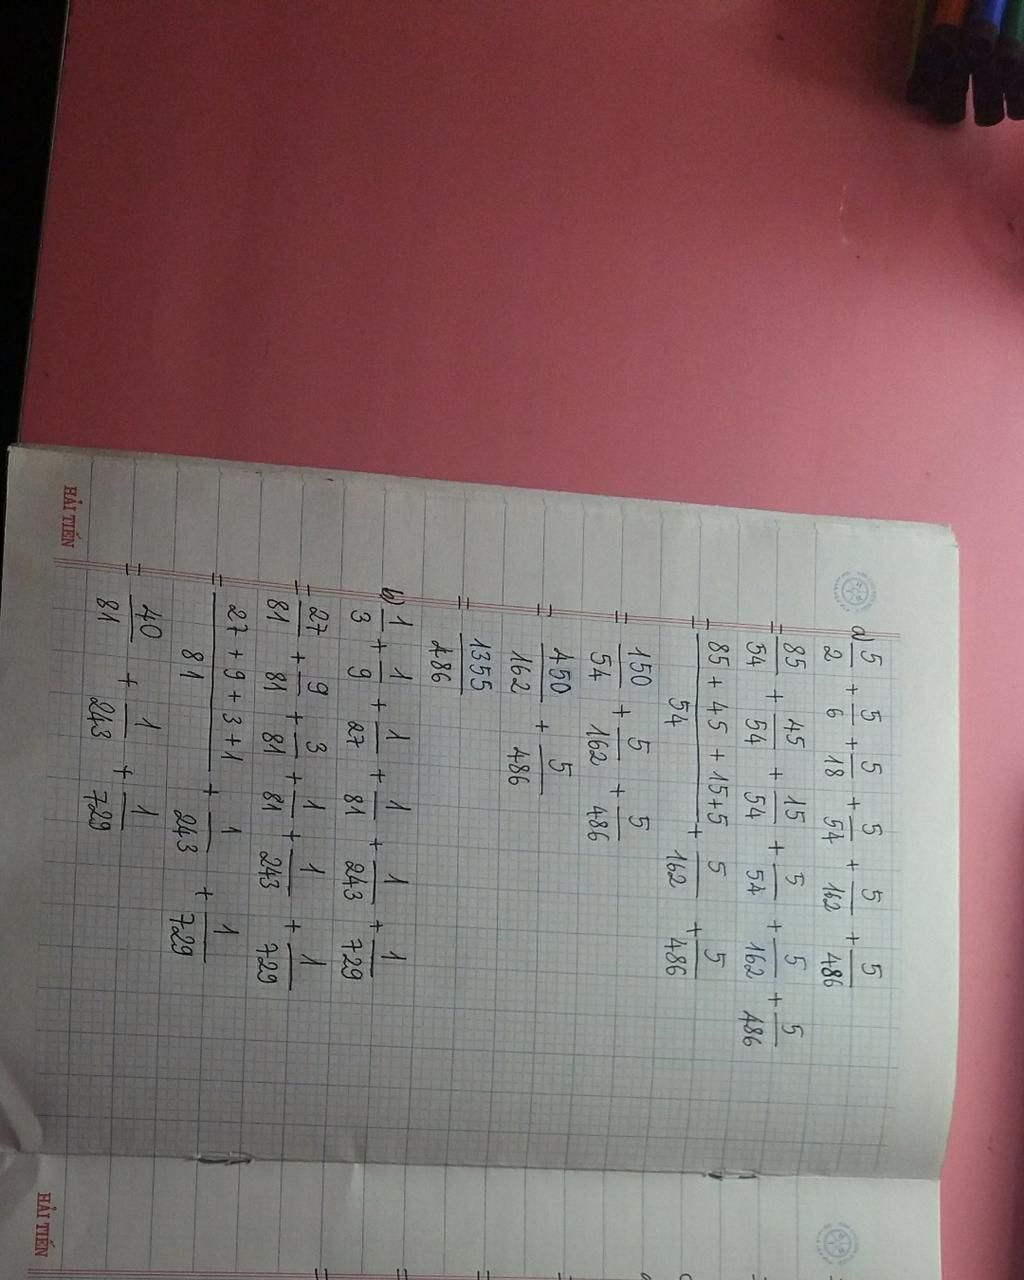 a) 5/2 + 5/6 + 5/18 + 5/54 + 5/162 + 5/486
= 85/54 + 45/54 + 15/54 + 5/54 + 5/162 + 5/486
= (85 + 45 + 15 + 5)/54 + 5/162 + 5/486
= 150/54 + 5/162 + 5/486
= 450/162 + 5/486
= 1355/486
b) 1/3 + 1/9 + 1/27 + 1/81 + 1/243 + 1/729
= 27/81 + 9/81 + 3/81 + 1/81 + 1/243 + 1/729
= (27 + 9 + 3 + 1)/81 + 1/243 + 1/729
= 40/81 + 1/243 + 1/729
HẢI TIẾN
HẢI TIẾN